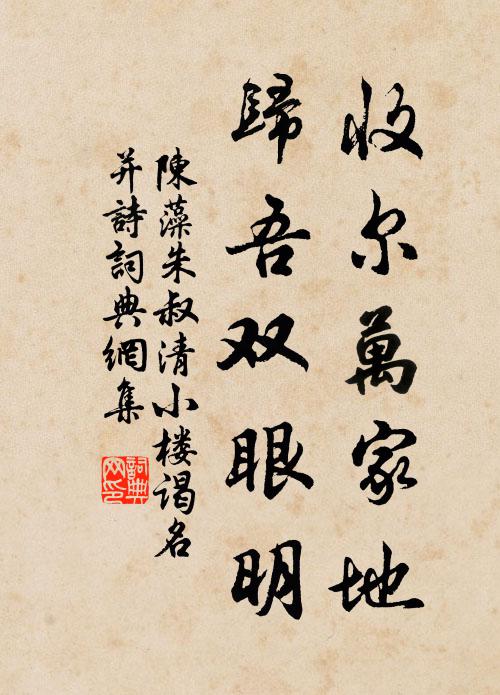 收尔萬家地
歸吾双眼明
陳藻朱叔清小楼謁名
并詩詞典網集
詞典
网印